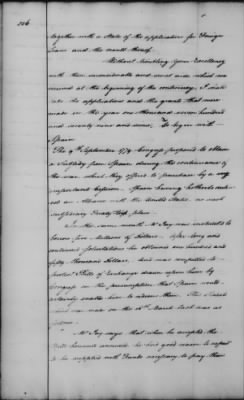 226
together with a State of the application for Foreign
Loans and the result thereof.
Without troubling your Excellency
with those immediate and secret aids which were
received at the beginning of the controversy, I will
state the applications and the grants that were
made in the year one thousand seven hundred
and seventy nine and since, To begin with
Spain
The 9th September 1779 Congress proposed to obtain
a Subsidy from Spain during the continuance of
the war which they offered to purchase by a very
important cession. Spain having hitherto
an Alliance with the United States, no such
Subsidiary Treaty took place.
In the same month Mr Jay was instructed to
borrow five Millions of Dollars. After long and
continued Solicitations he obtained one hundred and
fifty thousand Dollars, and was compelled to
protest Bills of Exchange drawn upon him by
Congress on the presumption that Spain would
certainly enable him to redeem them. The latest
was made on the 16th March last was at
Mr Jay says that when he accepted the
Bills he had good reason to expect
to be supplied with Funds necessary to pay them